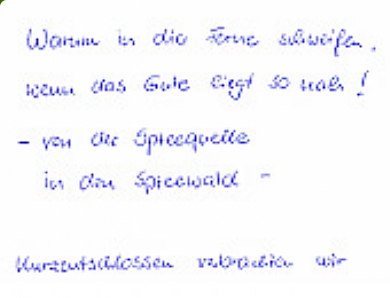 Warum in die Ferne schweifen,
wenn das Gute liegt so nah!
- von der Spreequelle
in den Spreewald -
Kurzentschlossen verbrachten wir